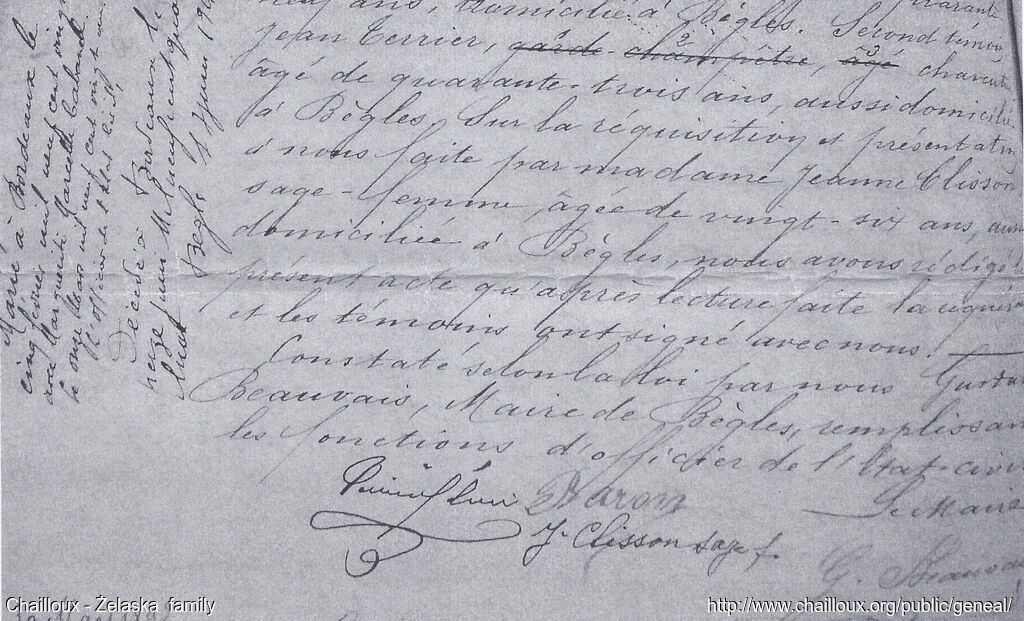 neuf ans, domicilié à Bègles. Second témoin
Jean Terrier, garde champêtre, âgé charcutier
âgé de quarante-trois ans, aussi domicilié
à Bègles. Sur la réquisition et présentation
à nous faite par madame Jeanne Clisson
sage-femme, âgée de vingt-six ans, aussi
domiciliée à Bègles, nous avons rédigé le
présent acte qu'après lecture faite la requér
et les témoins ont signé avec nous.
Constaté selon la loi par nous Gustave
Beauvais, Maire de Bègles, remplissant
les fonctions d'officier de l'Etat-civil
Le Maire
Baron
J. Clisson sage f.
G. Beauvais
Marié à Bordeaux le
cinq février mil neuf cent vingt
avec Marguerite
le onze Mars mil neuf cent vingt
l'officier de l'état civil,
Décédé à Bordeaux le
Juin Mil neuf cent
Bègles
Chailloux - Żelaska family
http://www.chailloux.org/public/geneal/